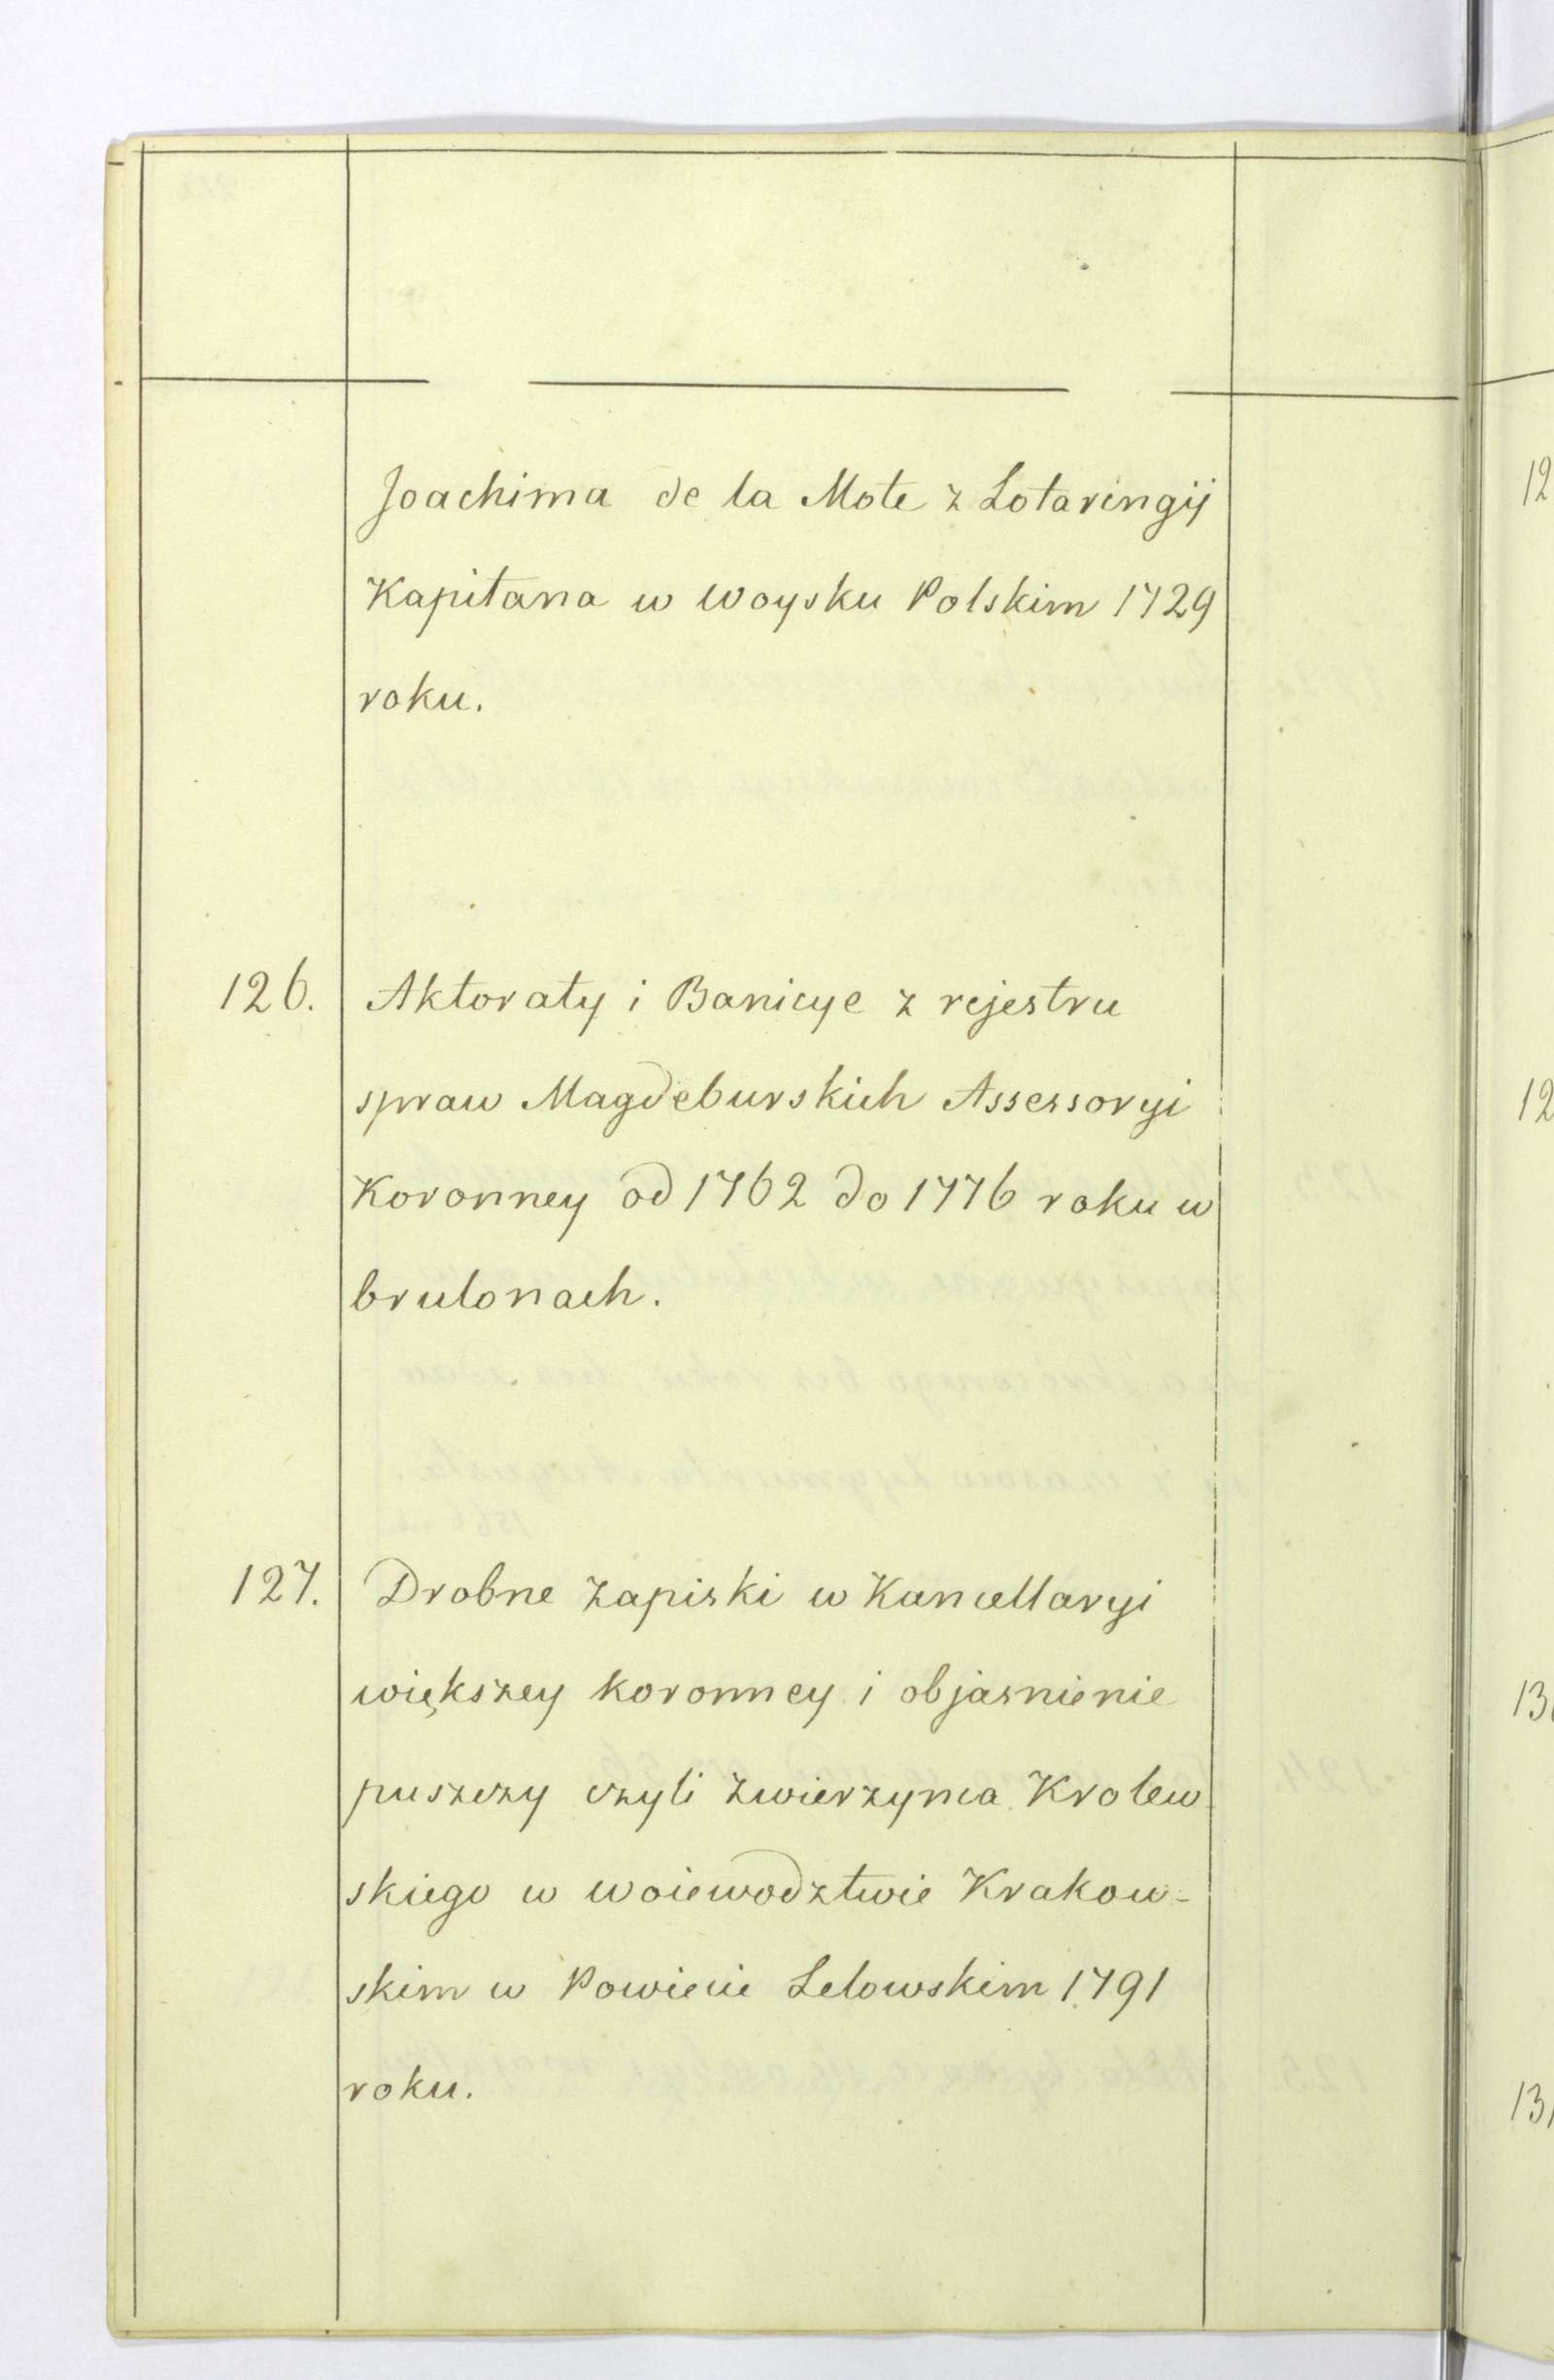 Joachima de la Mote z Lotaringij
Kapitana w Woysku Polskim 1729
roku.
126. Aktoraty i Banicye z rejestru
spraw Magdeburskich Assessoryi
Koronney od 1762 do 1776 roku w
brulonach.
127. Drobne zapiski w Kancellaryi
większey koronney i objasnienie
puszczy czyli zwierzynca Krolew
skiego w woiewodztwie Krakow-
skim w Powiecie Lelowskim 1791
roku.
12
12
13
131